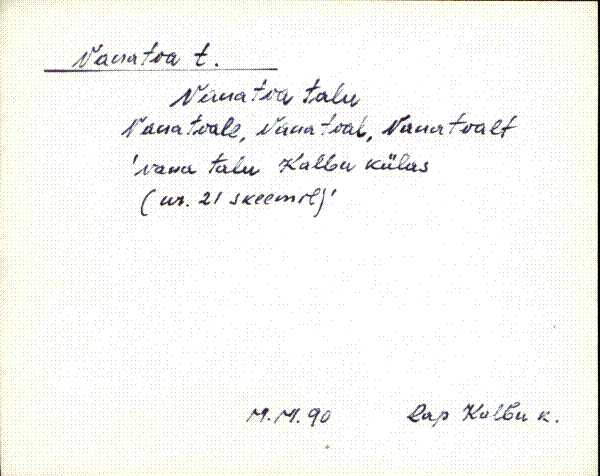 Vanatoa t.
Vanatoa talu
Vanatoale, Vanatoal, Vanatoalt
'vana talu Kalbu külas
(nr. 21 skeemil)'
M.M. 90 Rap Kalbu k.